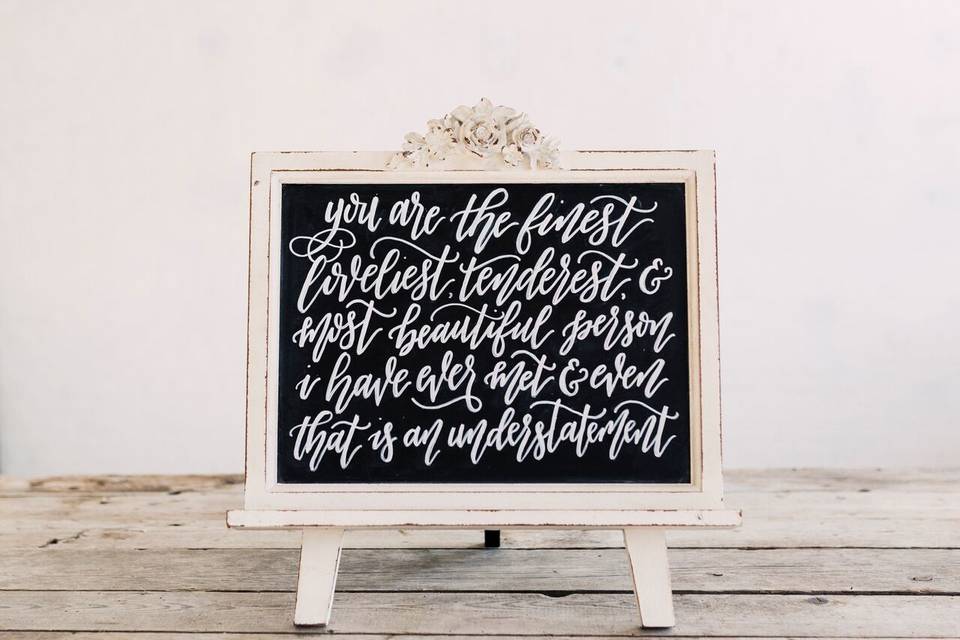 you are the finest
loveliest, tenderest, &
most beautiful person
i have ever met & even
that is an understatement